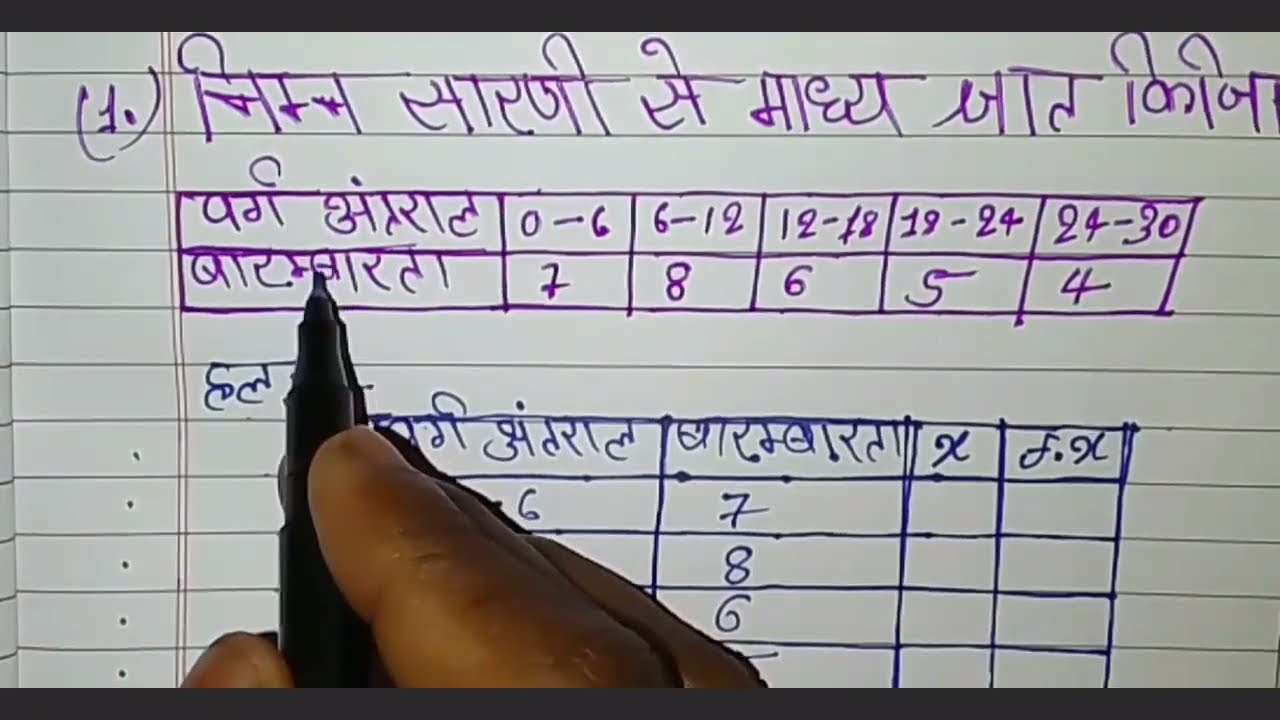 (1.) निम्न सारणी से माध्य ज्ञात किजि
वर्ग अंतराल 0-6 6-12 12-18 18-24 24-30
बारम्बारता 7 8 6 5 4
हल
वर्ग अंतराल बारम्बारता x f.x
6 7
8
6